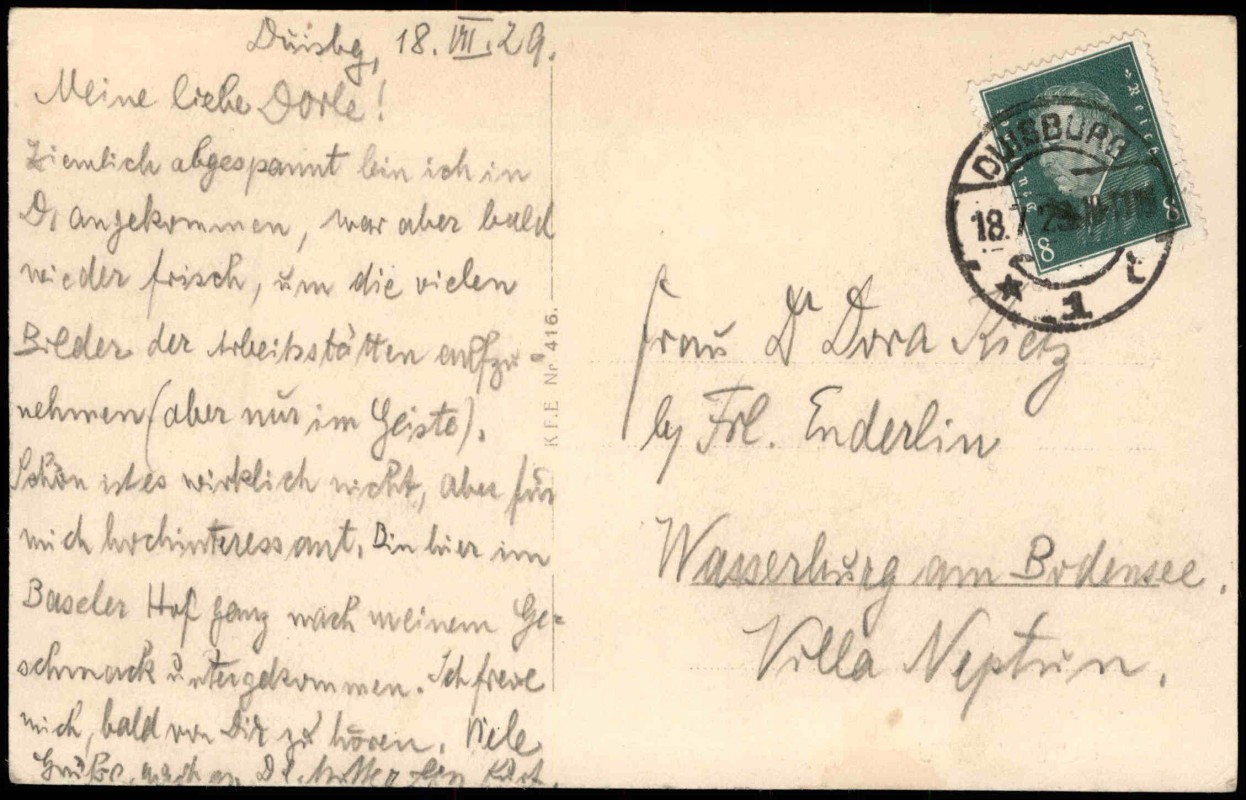 Duisbg, 18. VII. 29.
Meine liebe Dorle!
Ziemlich abgespannt bin ich in
D. angekommen, war aber bald
wieder frisch, um die vielen
Bilder der Arbeitsstätten aufzu-
nehmen (aber nur im Geiste).
Schön ist es wirklich nicht, aber für
mich hochinteressant. Bin hier im
Baseler Hof ganz nach meinem Ge-
schmack untergekommen. Ich freue
mich, bald von Dir zu hören. Viele
Grüße, auch an D. Mutter
K F.E Nr 416.
Reich
8
8
DUISBURG
18.7.29
* 1 t
Frau Dr Dora
by Frl. Enderlin
Wasserburg am Bodensee.
Villa Neptun.